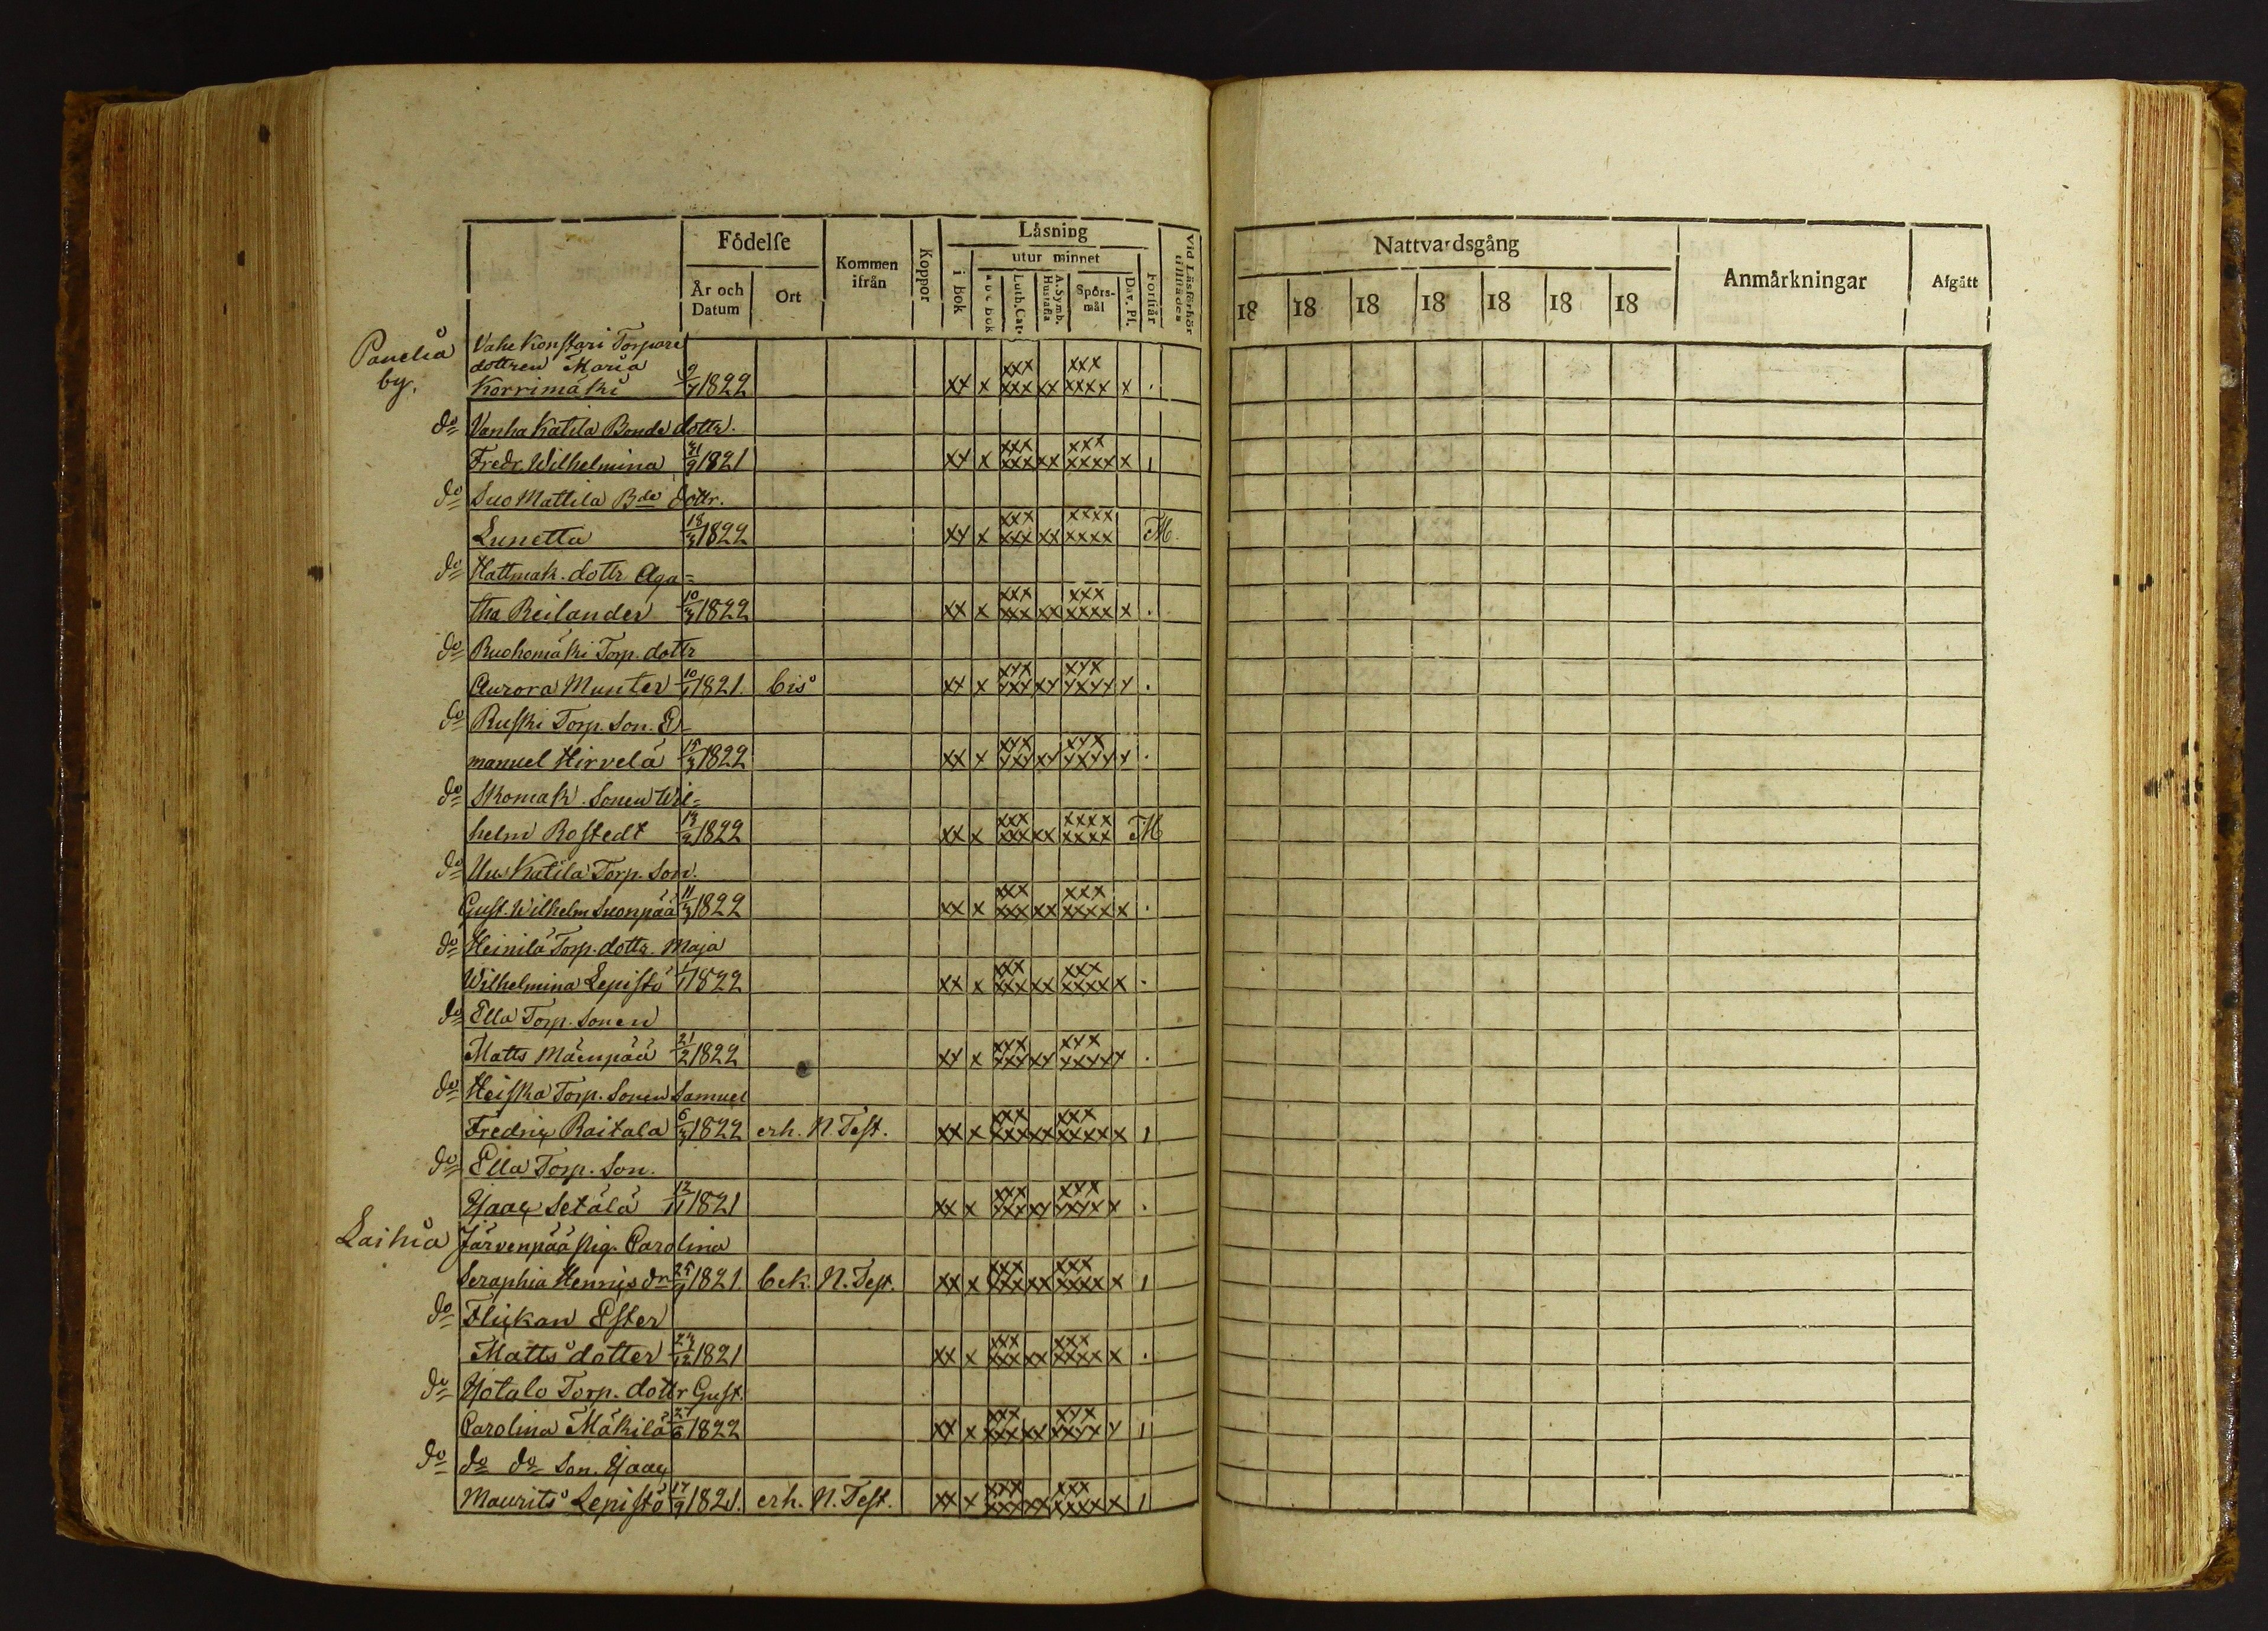 Fōdelſe
År och Datum
Ort
Kommen ifrån
Koppor
Låsning
i bok
utur minnet
Luth. Cat.
A. Symb. Hustafla
Spörs-mål
Dav. Pſ.
Förſtår
Vid Låsförhör tillſtädes
Nattvardsgång
18 18 18 18 18 18 18
Anmårkningar
Afgått
Panelia by.
Vahe Konſtari Torpare
dottren Maria
Korrimäki 9/7 1822 xx x xxx xxx xx xxx xxxx x .
do Vanha Katila Bonde dottr.
Fredr. Wilhelmina 21/9 1821 xx x xxx xxx xx xxx xxxx x ,
do Suo Mattila Bde dottr.
Lunetta 18/3 1822 xx x xxx xxx xx xxxx xxxx M.
do Hattmak. dottr Aga=
tha Reilander 10/3 1822 xx x xxx xxx xx xxx xxxx x .
do Ruohomäki Torp. dottr
Aurora Munter 10/1 1821. bis xx x xxx xxx xx xxx xxxx x .
do Ruſki Torp. Son. E-
manuel Hirvelä 15/3 1822 xx x xxx xxx xx xxx xxxx x .
do Skomak. Sonen Wil=
helm Roſtedt 13/2 1822 xx x xxx xxx xx xxxx xxxx M
do Uus Katila Torp. Son.
Guſt. Wilhelm Suonpää 11/3 1822 xx x xxx xxx xx xxx xxxx x .
do Heinilä Torp. dottr. Maja
Wilhelmina Lepiſtö 1822 xx x xxx xxx xx xxx xxxx x .
do Ella Torp. Sonen
Matts Mäenpää 21/2 1822 xx x xxx xxx xx xxx xxxx x .
do Heiſka Torp. Sonen Samuel
Fredric Raitala 6/3 1822 erh. N. Teſt. xx x xxx xxx xx xxx xxxx x ,
do Ella Torp. Son.
Iſaac Setälä 12/11 1821 xx x xxx xxx xx xxx xxxx x .
Laihia Järvenpää Pig. Carolina
Seraphia Henricsdr 25/9 1821. bek. N. Teſt. xx x xxx xxx xx xxx xxxx x ,
do Flickan Eſter
Matts dotter 24/12 1821 xx x xxx xxx xx xxx xxxx x .
do Iſotalo Torp. dottr Guſt.
Carolina Mäkilä 27/6 1822 xx x xxx xxx xx xxx xxxx x ,
do do do Son. Iſaac
Maurits Lepiſtö 17/9 1821. erh. N. Teſt. xx x xxx xxx xx xxx xxxx x ,